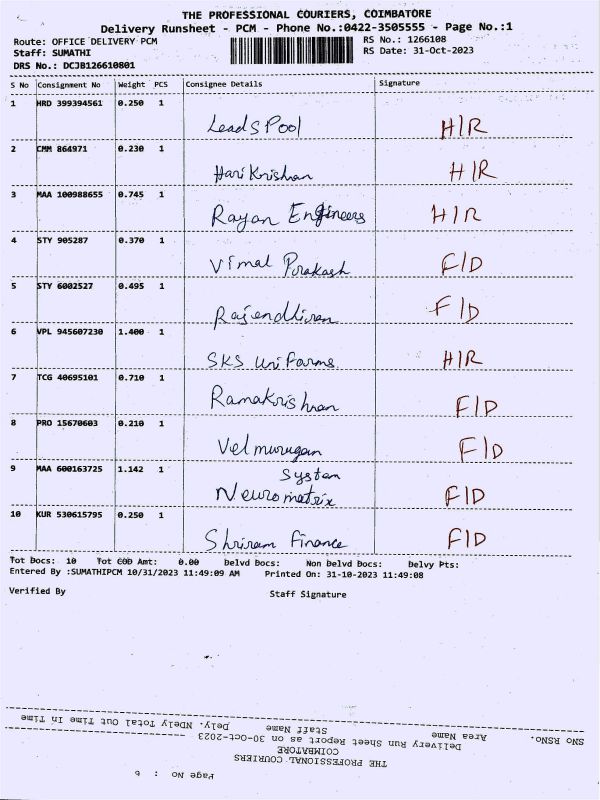 THE PROFESSIONAL COURIERS, COIMBATORE
Delivery Runsheet - PCM - Phone No.:0422-3505555 - Page No.:1
Route: OFFICE DELIVERY PCM RS No.: 1266108
Staff: SUMATHI RS Date: 31-Oct-2023
DRS No.: DCJB126610801
S No Consignment No Weight PCS Consignee Details Signature
1 HRD 399394561 0.250 1
Leads Pool H/R
2 CMM 864971 0.230 1
Hari Krishnan H/R
3 MAA 100988655 0.745 1
Rayan Engineers H/R
4 STY 905287 0.370 1
Vimal Prakash F/D
5 STY 6002527 0.495 1
Rajendhiran F/D
6 VPL 945607230 1.400 1
SKS Uniforms H/R
7 TCG 40695101 0.710 1
Ramakrishnan F/D
8 PRO 15670603 0.210 1
Velmurugan F/D
9 MAA 600163725 1.142 1
System
Neuromatrix F/D
10 KUR 530615795 0.250 1
Shriram Finance F/D
Tot Docs: 10 Tot COD Amt: 0.00 Delvd Docs: Non Delvd Docs: Delvy Pts:
Entered By :SUMATHIPCM 10/31/2023 11:49:09 AM Printed On: 31-10-2023 11:49:08
Verified By Staff Signature
Page No : 6
THE PROFESSIONAL COURIERS
COIMBATORE
Delivery Run Sheet Report as on 30-Oct-2023
SNO RSNO. Area Name Staff Name Dely. NDely Total Out Time In Time